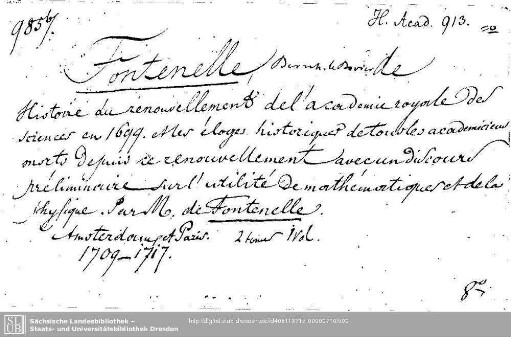 985b.
H. Acad. 913.
Fontenelle, de
Histoire du renouvellement de l'academie royale des
sciences en 1699. et les éloges historiques de tous les academiciens
morts depuis ce renouvellement avec un discours
préliminaire sur l'utilité de mathématiques et de la
physique. Par M. de Fontenelle.
Amsterdam et Paris. 2 tomes 1 Vol.
1709-1717.
8º
SLUB
Sächsische Landesbibliothek –
Staats- und Universitätsbibliothek Dresden